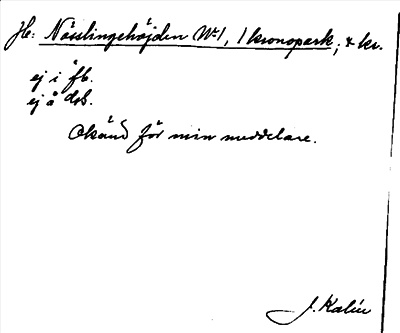 H: Nässlingehöjden No 1, 1 kronopark; & kr.
ej i fb.
ej å drb.
Okänd för min meddelare.
J. Kalén